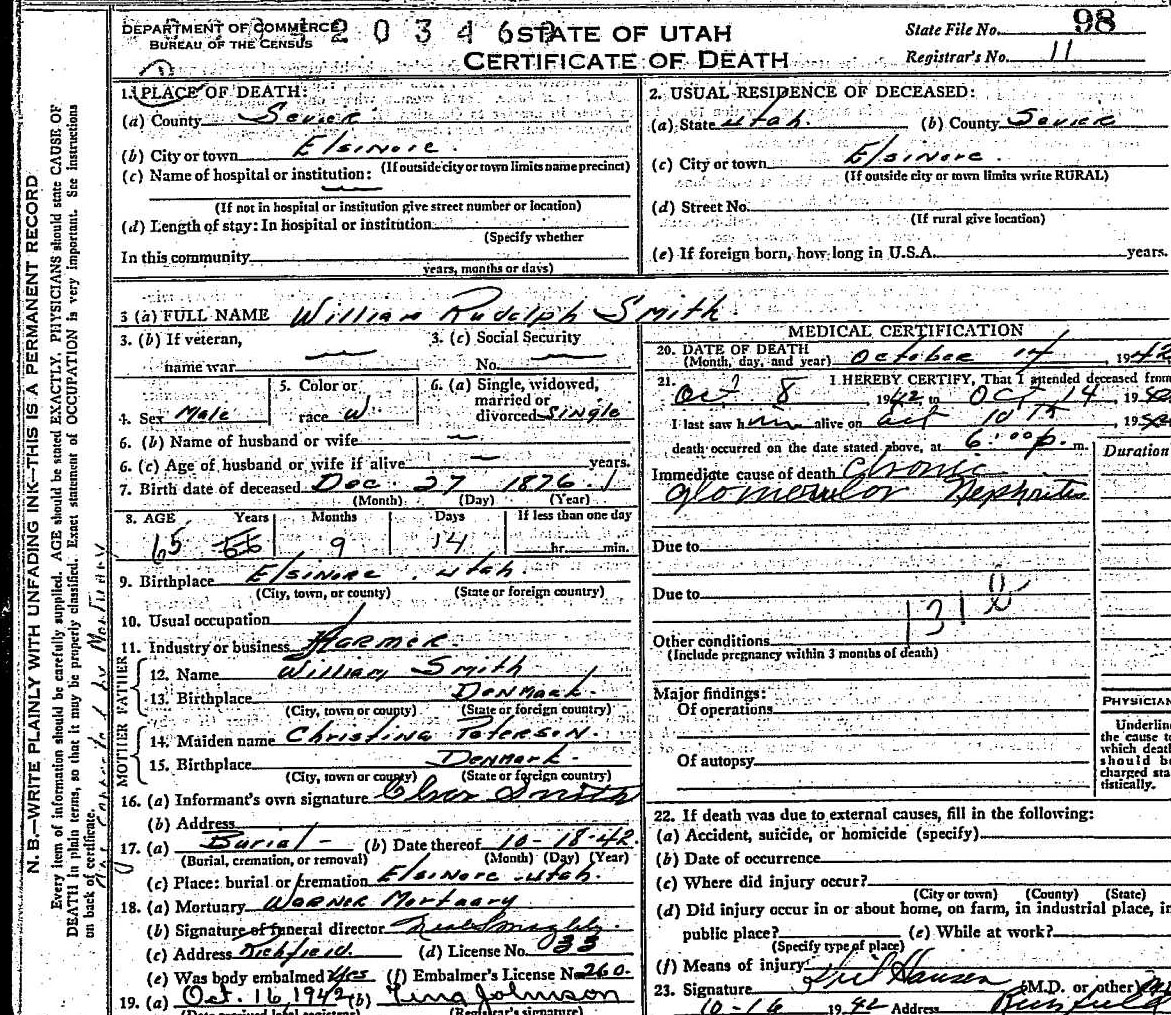 DEPARTMENT OF COMMERCE
BUREAU OF THE CENSUS
2 0 3 4 6
STATE OF UTAH
CERTIFICATE OF DEATH
State File No. 98
Registrar's No. 11
N. B.—WRITE PLAINLY WITH UNFADING INK—THIS IS A PERMANENT RECORD
Every item of information should be carefully supplied. AGE should be stated EXACTLY. PHYSICIANS should state CAUSE OF
DEATH in plain terms, so that it may be properly classified. Exact statement of OCCUPATION is very important. See instructions
on back of certificate.
1. PLACE OF DEATH:
(a) County Sevier
(b) City or town Elsinore.
(If outside city or town limits name precinct)
(c) Name of hospital or institution:
(If not in hospital or institution give street number or location)
(d) Length of stay: In hospital or institution
(Specify whether
In this community
years, months or days)
2. USUAL RESIDENCE OF DECEASED:
(a) State Utah. (b) County Sevier
(c) City or town Elsinore.
(If outside city or town limits write RURAL)
(d) Street No.
(If rural give location)
(e) If foreign born, how long in U.S.A. years.
3 (a) FULL NAME William Rudolph Smith.
3. (b) If veteran,
name war
3. (c) Social Security
No.
4. Sex Male
5. Color or
race W
6. (a) Single, widowed,
married or
divorced Single
6. (b) Name of husband or wife
6. (c) Age of husband or wife if alive years.
7. Birth date of deceased Dec. 27 1876
(Month) (Day) (Year)
8. AGE Years Months Days If less than one day
65 66 9 14 hr. min.
9. Birthplace Elsinore. Utah.
(City, town, or county) (State or foreign country)
10. Usual occupation
11. Industry or business Farmer.
FATHER
12. Name William Smith
13. Birthplace Denmark.
(City, town or county) (State or foreign country)
MOTHER
14. Maiden name Christina Peterson.
15. Birthplace Denmark.
(City, town or county) (State or foreign country)
16. (a) Informant's own signature Smith
(b) Address
17. (a) Burial - (b) Date thereof 10-18-42.
(Burial, cremation, or removal) (Month) (Day) (Year)
(c) Place: burial or cremation Elsinore Utah.
18. (a) Mortuary Warner Mortuary
(b) Signature of funeral director
(c) Address Richfield. (d) License No. 33
(e) Was body embalmed Yes (f) Embalmer's License No 260.
19. (a) Oct. 16, 1942 (b) Tina Johnson
(Date received local registrar) (Registrar's signature)
MEDICAL CERTIFICATION
20. DATE OF DEATH
(Month, day, and year) October 14, 1942
21. I HEREBY CERTIFY, That I attended deceased from
Oct 8 1942 to Oct 14 19
I last saw him alive on Oct 10th 19
death occurred on the date stated above, at 6:00 p. m.
Duration
Immediate cause of death Chronic
Glomerular Nephritis
Due to
Due to
131
Other conditions
(Include pregnancy within 3 months of death)
Major findings:
Of operations
Of autopsy
PHYSICIAN
Underlin
the cause t
which deat
should b
charged sta
tistically.
22. If death was due to external causes, fill in the following:
(a) Accident, suicide, or homicide (specify)
(b) Date of occurrence
(c) Where did injury occur?
(City or town) (County) (State)
(d) Did injury occur in or about home, on farm, in industrial place, in
public place? (e) While at work?
(Specify type of place)
(f) Means of injury
23. Signature Hansen (M.D. or other)
10-16 1942 Address Richfield